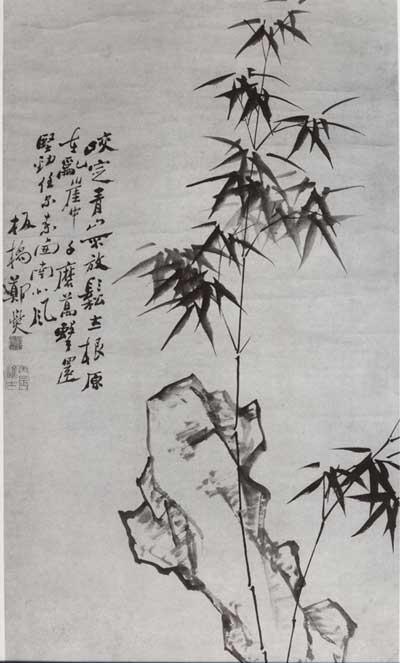 咬定青山不放鬆立根原
在亂崖中千磨萬擊還
堅勁任尔東西南北風
板橋鄭燮